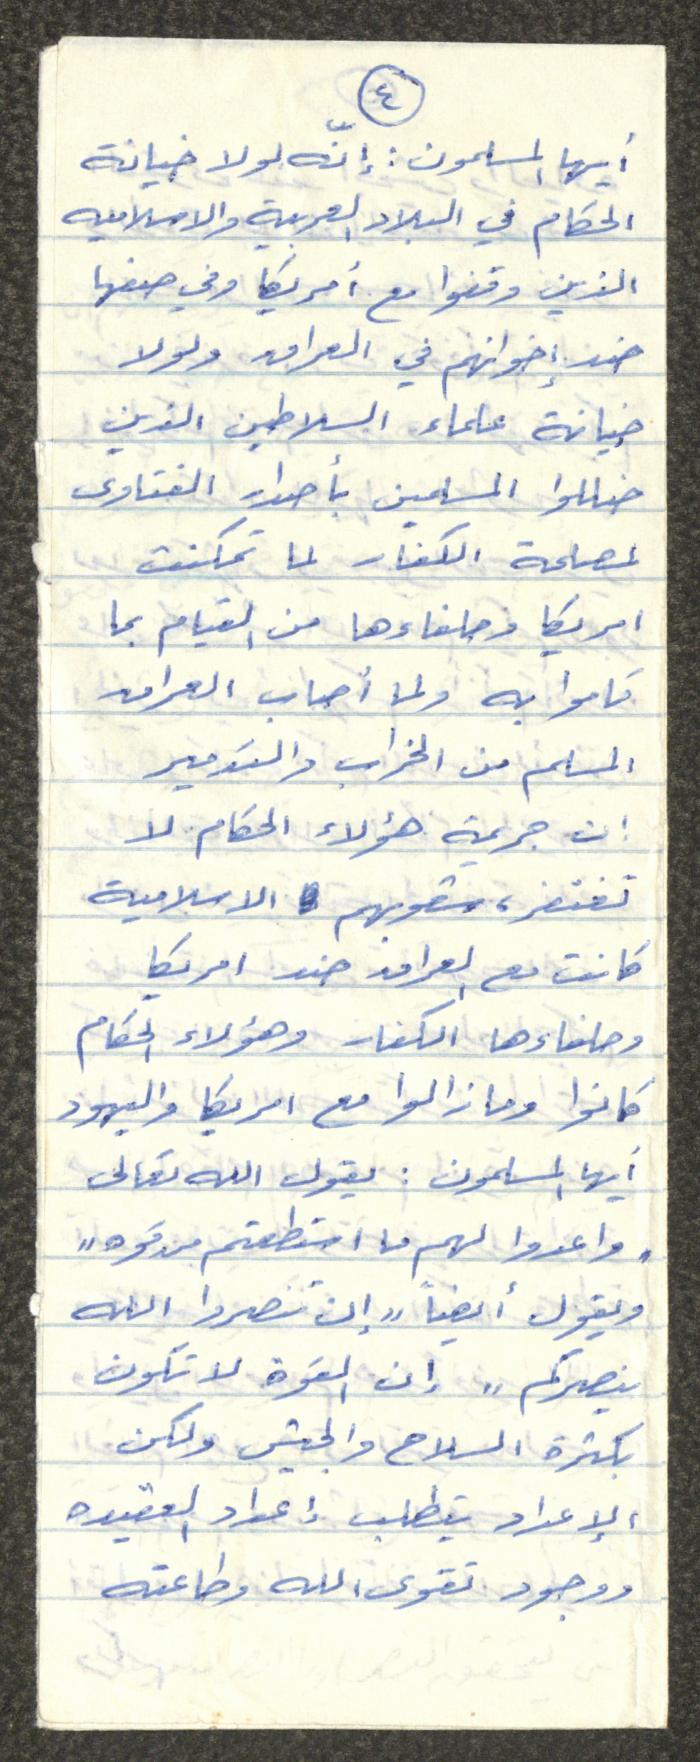 ٤
أيها المسلمون: إنّه لولا خيانة
الحكام في البلاد العربية والاسلاميه
الذين وقفوا مع أمريكا وفي صفها
ضد إخوانهم في العراق ولولا
خيانة علماء السلاطين الذين
ضللوا المسلمين بأصدار الفتاوى
لمصلحة الكفار لما تمكنت
امريكا وحلفاءها من القيام بما
قاموا به ولما أصاب العراق
المسلم من الخراب والتدمير
إن جريمة هؤلاء الحكام لا
تغتفر، شعوبهم الاسلامية
كانت مع العراق ضد امريكا
وحلفاءها الكفار وهؤلاء الحكام
كانوا وما زالوا مع امريكا واليهود
أيها المسلمون: يقول الله تعالى
"واعدوا لهم ما استطعتم من قوه"
ويقول أيضاً "إن تنصروا الله
ينصركم" إن القوة لا تكون
بكثرة السلاح والجيش ولكن
الإعداد يتطلب إعداد العقيده
ووجود تقوى الله وطاعته